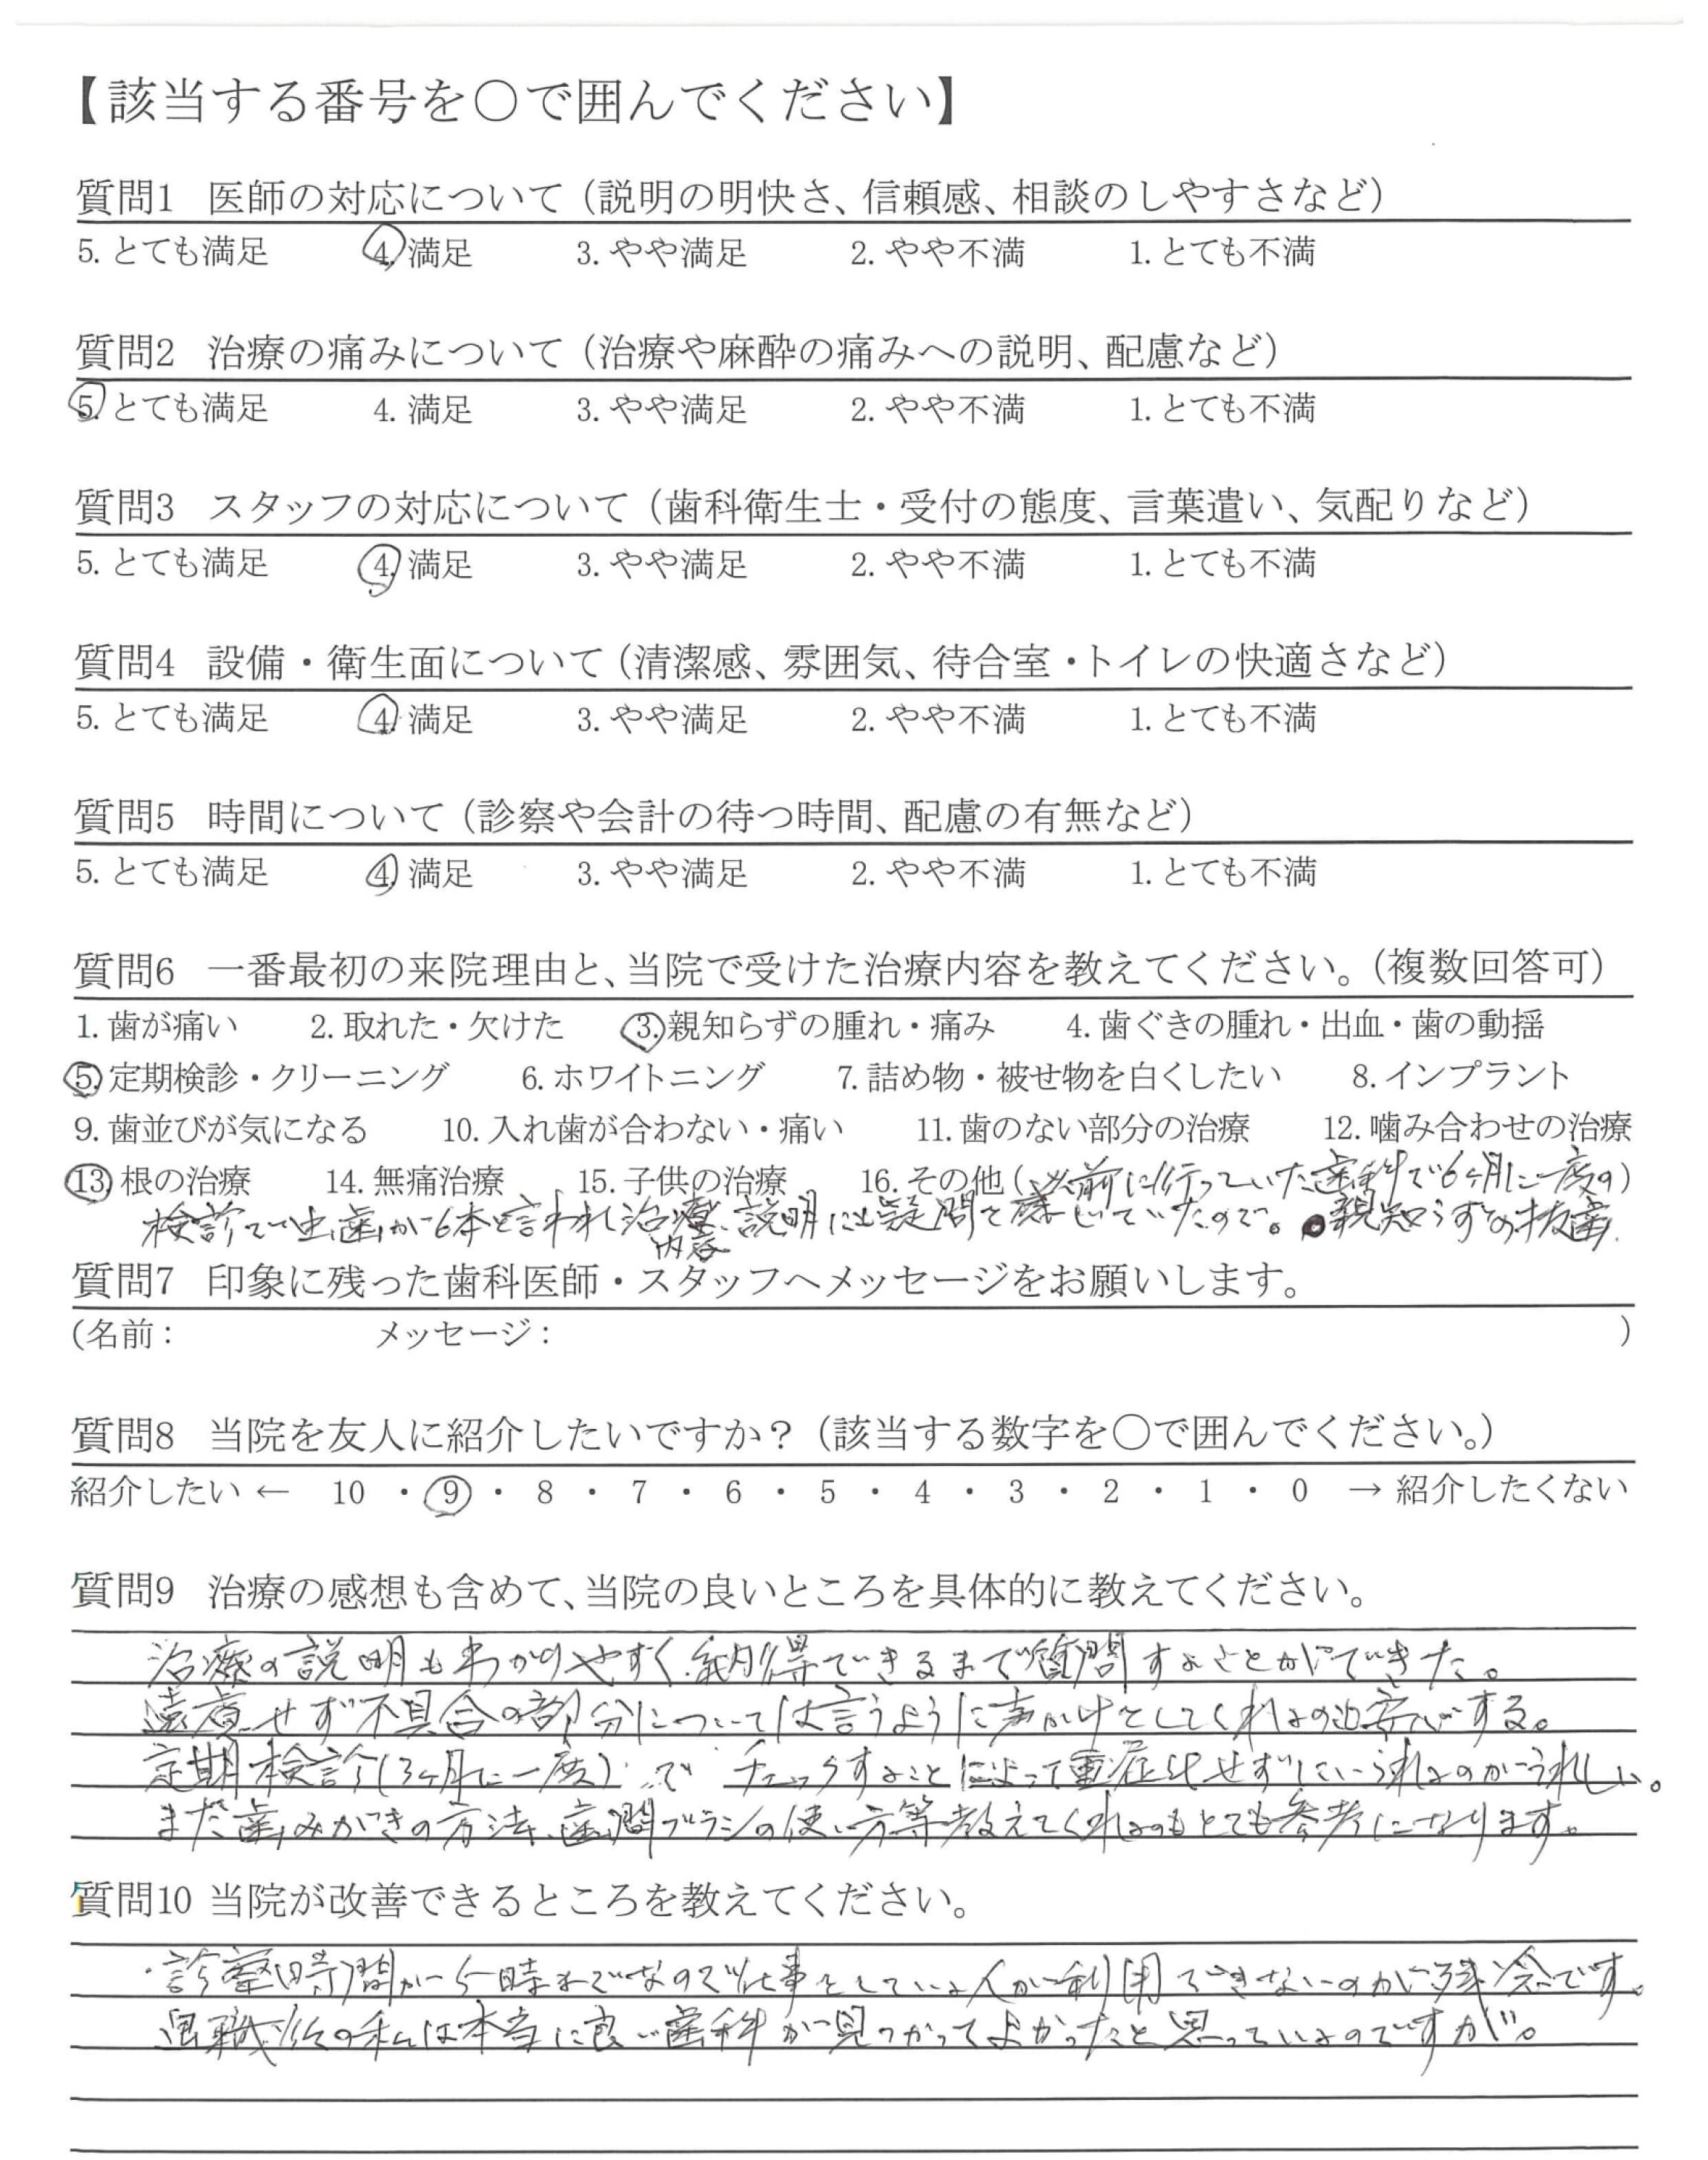 【該当する番号を〇で囲んでください】
質問1 医師の対応について（説明の明快さ、信頼感、相談のしやすさなど）
5. とても満足 4. 満足 3. やや満足 2. やや不満 1. とても不満
質問2 治療の痛みについて（治療や麻酔の痛みへの説明、配慮など）
5. とても満足 4. 満足 3. やや満足 2. やや不満 1. とても不満
質問3 スタッフの対応について（歯科衛生士・受付の態度、言葉遣い、気配りなど）
5. とても満足 4. 満足 3. やや満足 2. やや不満 1. とても不満
質問4 設備・衛生面について（清潔感、雰囲気、待合室・トイレの快適さなど）
5. とても満足 4. 満足 3. やや満足 2. やや不満 1. とても不満
質問5 時間について（診察や会計の待つ時間、配慮の有無など）
5. とても満足 4. 満足 3. やや満足 2. やや不満 1. とても不満
質問6 一番最初の来院理由と、当院で受けた治療内容を教えてください。（複数回答可）
1. 歯が痛い 2. 取れた・欠けた 3. 親知らずの腫れ・痛み 4. 歯ぐきの腫れ・出血・歯の動揺
5. 定期検診・クリーニング 6. ホワイトニング 7. 詰め物・被せ物を白くしたい 8. インプラント
9. 歯並びが気になる 10. 入れ歯が合わない・痛い 11. 歯のない部分の治療 12. 噛み合わせの治療
13. 根の治療 14. 無痛治療 15. 子供の治療 16. その他（以前に行っていた歯科で6ヶ月に一度の）
検診で虫歯が6本と言われ治療内容、説明にも疑問を感じていたので。親知らずの抜歯。
質問7 印象に残った歯科医師・スタッフへメッセージをお願いします。
（名前： メッセージ： ）
質問8 当院を友人に紹介したいですか？（該当する数字を〇で囲んでください。）
紹介したい ← 10 ・ 9 ・ 8 ・ 7 ・ 6 ・ 5 ・ 4 ・ 3 ・ 2 ・ 1 ・ 0 → 紹介したくない
質問9 治療の感想も含めて、当院の良いところを具体的に教えてください。
治療の説明もわかりやすく、納得できるまで質問することができた。
遠慮せず不具合の部分については言うように声かけをしてくれるのも安心する。
定期検診（3ヶ月に一度）で チェックすることによって重症化せずにいられるのがうれしい。
また歯みがきの方法、歯間ブラシの使い方等教えてくれるのもとても参考になります。
質問10 当院が改善できるところを教えてください。
・診察時間が5時までなので仕事をしている人が利用できないのが残念です。
退職後の私は本当に良い歯科が見つかってよかったと思っているのですが。